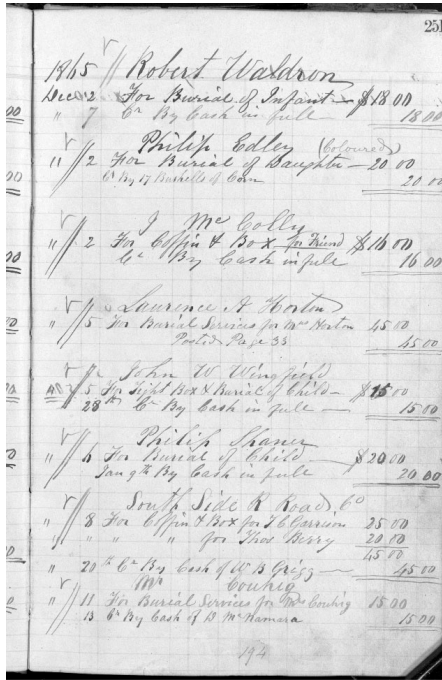 251
1865 Robert Waldron
Dec 2 For Burial of Infant — $18 00
" 7 Cr By Cash in full — 18 00
Philip Edley (Coloured)
" 2 For Burial of Daughter — 20 00
Cr By 17 Bushells of Corn 20 00
J McColly
" 2 For Coffin & Box for Friend $16 00
Cr By Cash in full 16 00
Laurence A Horton
" 5 For Burial Services for Mrs Horton 45 00
Posted Page 33 45 00
John W Wingfield
" 5 For Tight Box & Burial of Child — $15 00
28th Cr By Cash in full — 15 00
Philip Shaner
" 6 For Burial of Child — $20 00
Jan 9th By Cash in full 20 00
South Side R Road, Co
" 8 For Coffin & Box for J C Garrison 25 00
" " " " for Thos Berry 20 00
45 00
" 20th Cr By Cash of W B Grigg — 45 00
Mr Couhig
" 11 For Burial Services for Mrs Couhig 15 00
13 Cr By Cash of B McNamara 15 00
194